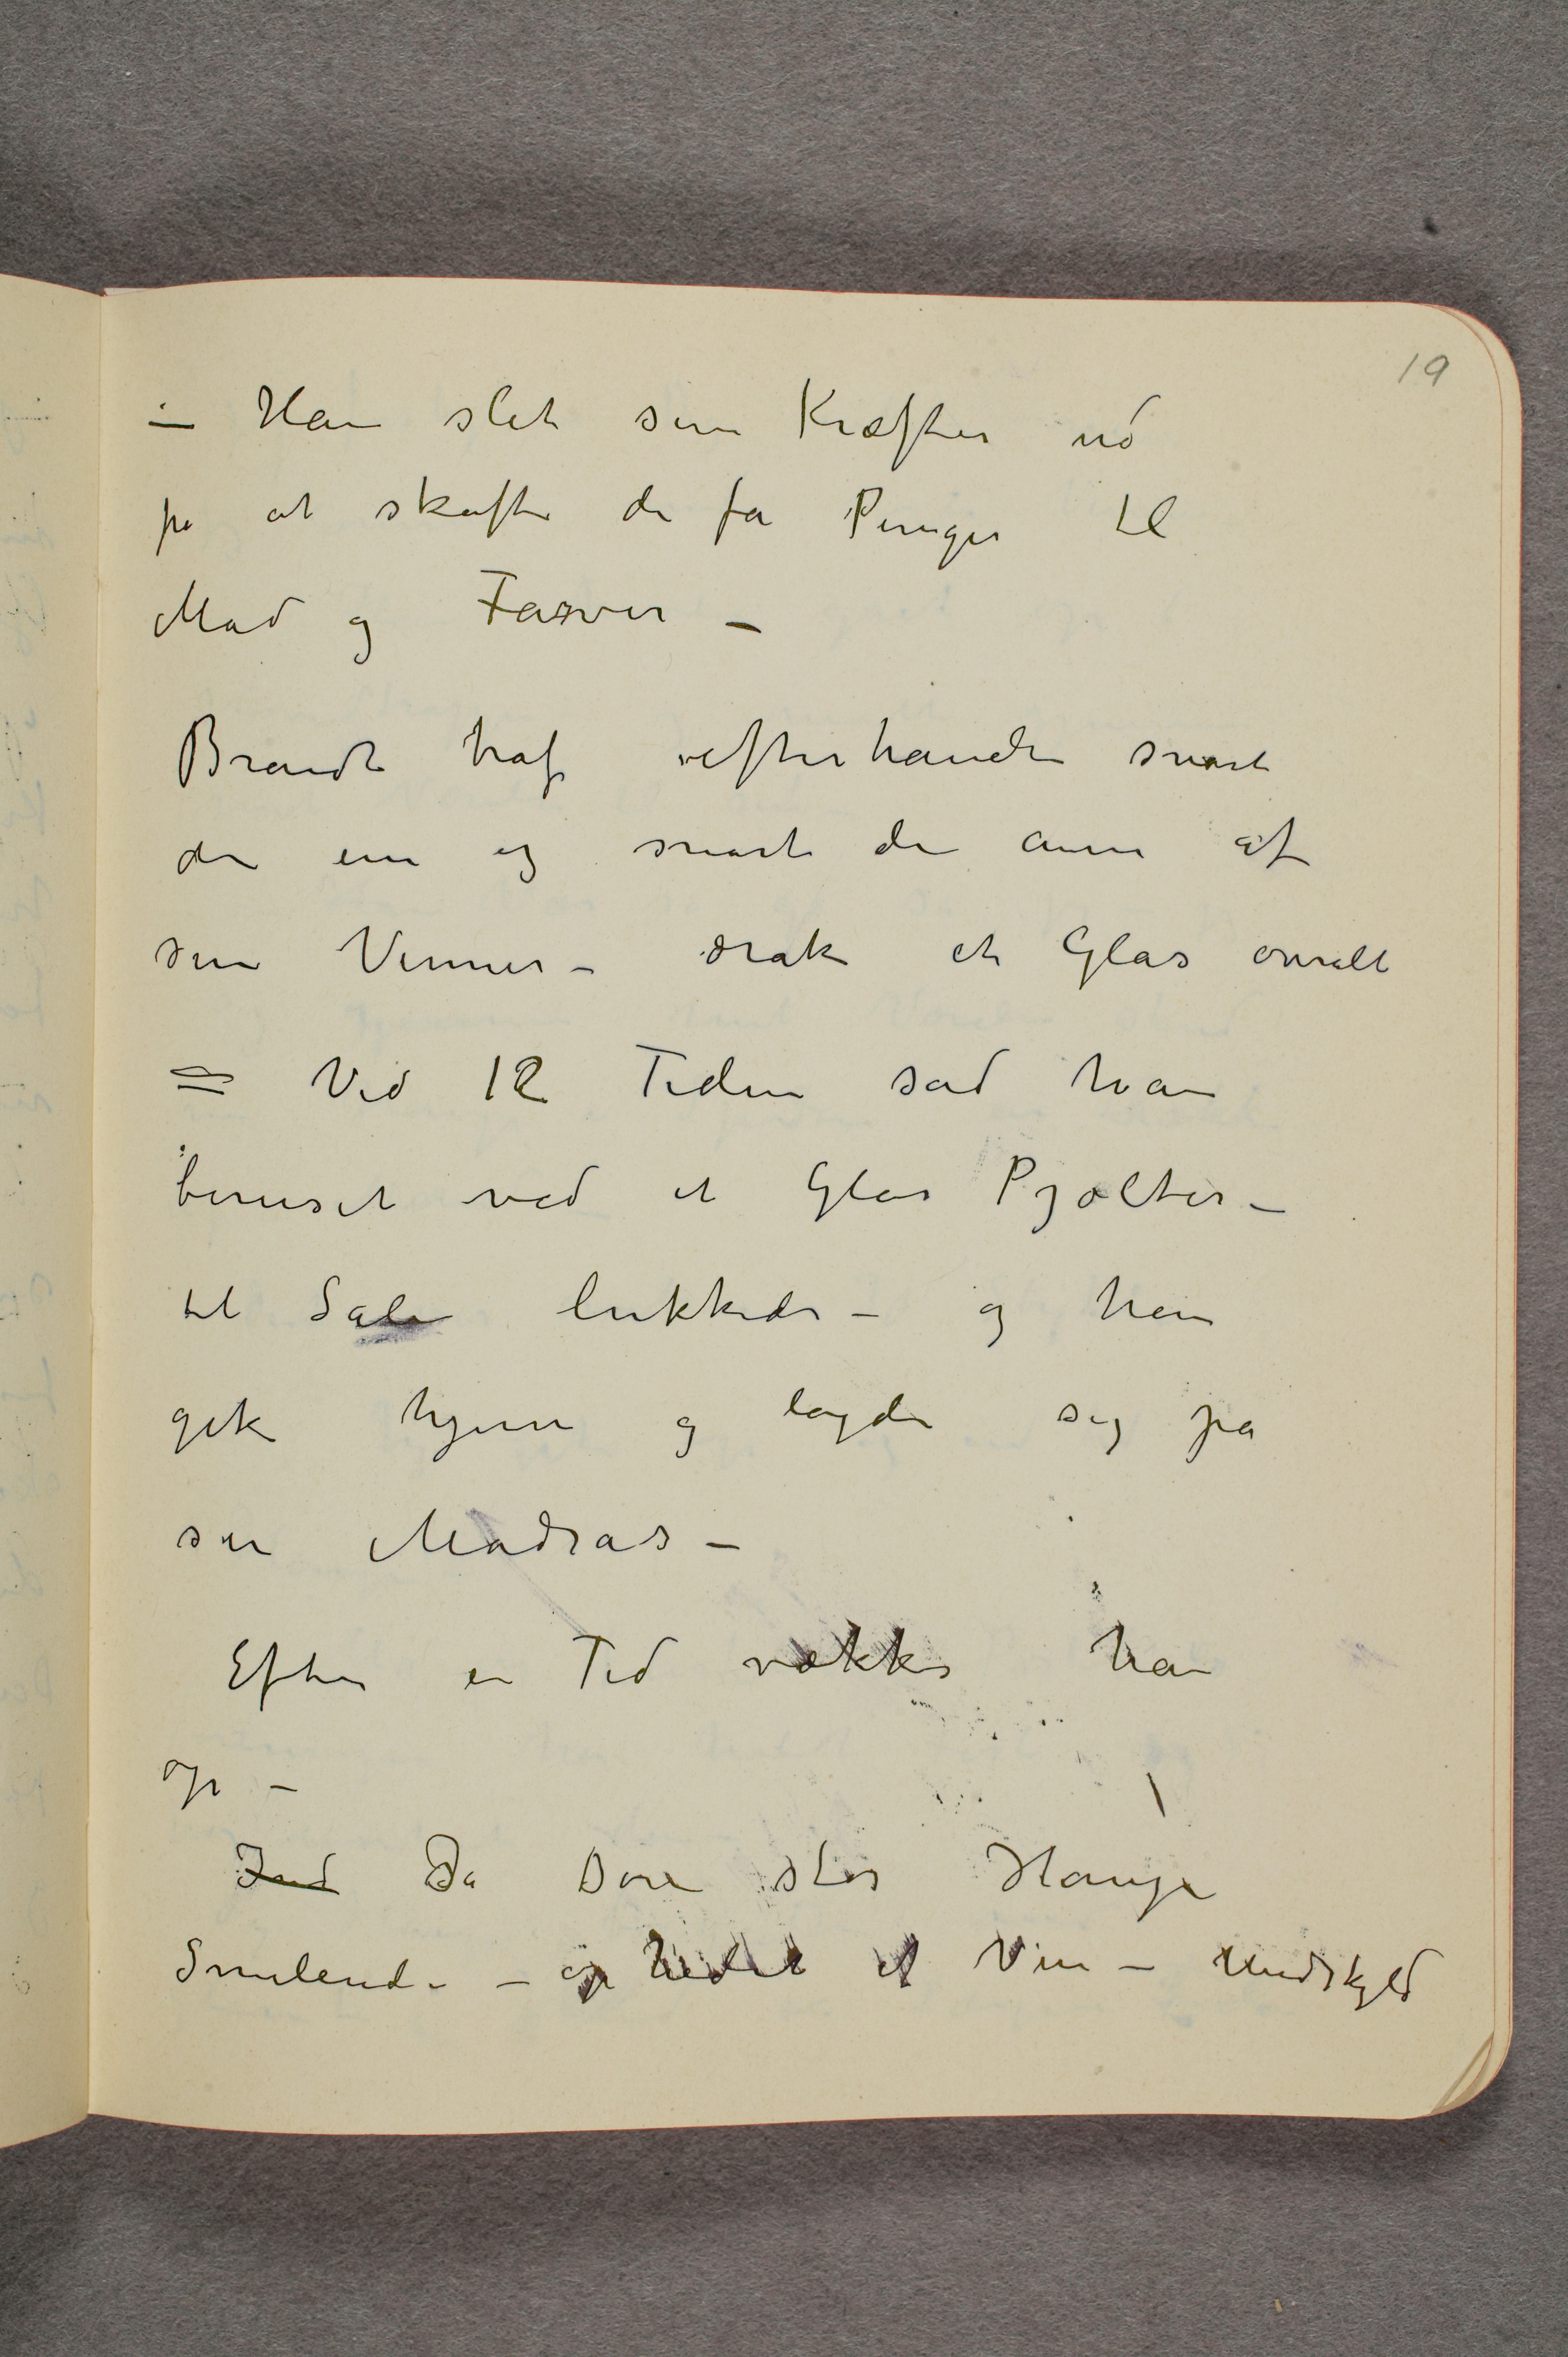 19
– Han slet sine Kræfter ud
på at skaffe de få Penger til
Mad og Farver –
Brandt traf efterhånden snart
den ene og snart den anne af
sine Venner – drak et Glas overalt
= Ved 12 Tiden sad han
beruset ved et Glas Pjolter –
til Salen lukkedes – og han
gik hjem og lagde sig på
sin Madras –
Efter en Tid vækkes han
op –
Ind I Døren står Hauge
Smilende – ophedet af Vin – Undskyld